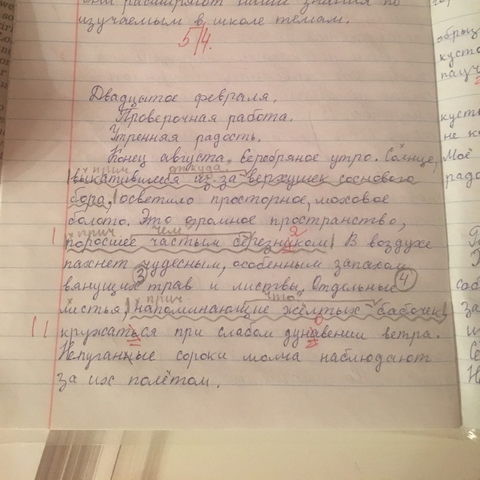 расширяют наши знания по
изучаемым в школе темам.
5/4.
Двадцатое февраля.
Проверочная работа.
Утренняя радость.
Конец августа. Серебряное утро. Солнце,
прич откуда
выкатившееся из-за верхушек соснового
бора, осветило просторное, моховое
болото. Это огромное пространство,
прич чем я
поросшее частым березником. В воздухе
пахнет чудесным, особенным запахом
3 4
вянущих трав и листвы. Отдельные
прич что
листья, напоминающие жёлтых бабочек,
кружаться при слабом дунавении ветра.
Непуганные сороки молча наблюдают
за их полётом.
обрыз
кусто
пауч
кусты
не к
Моё
радо
соб
за